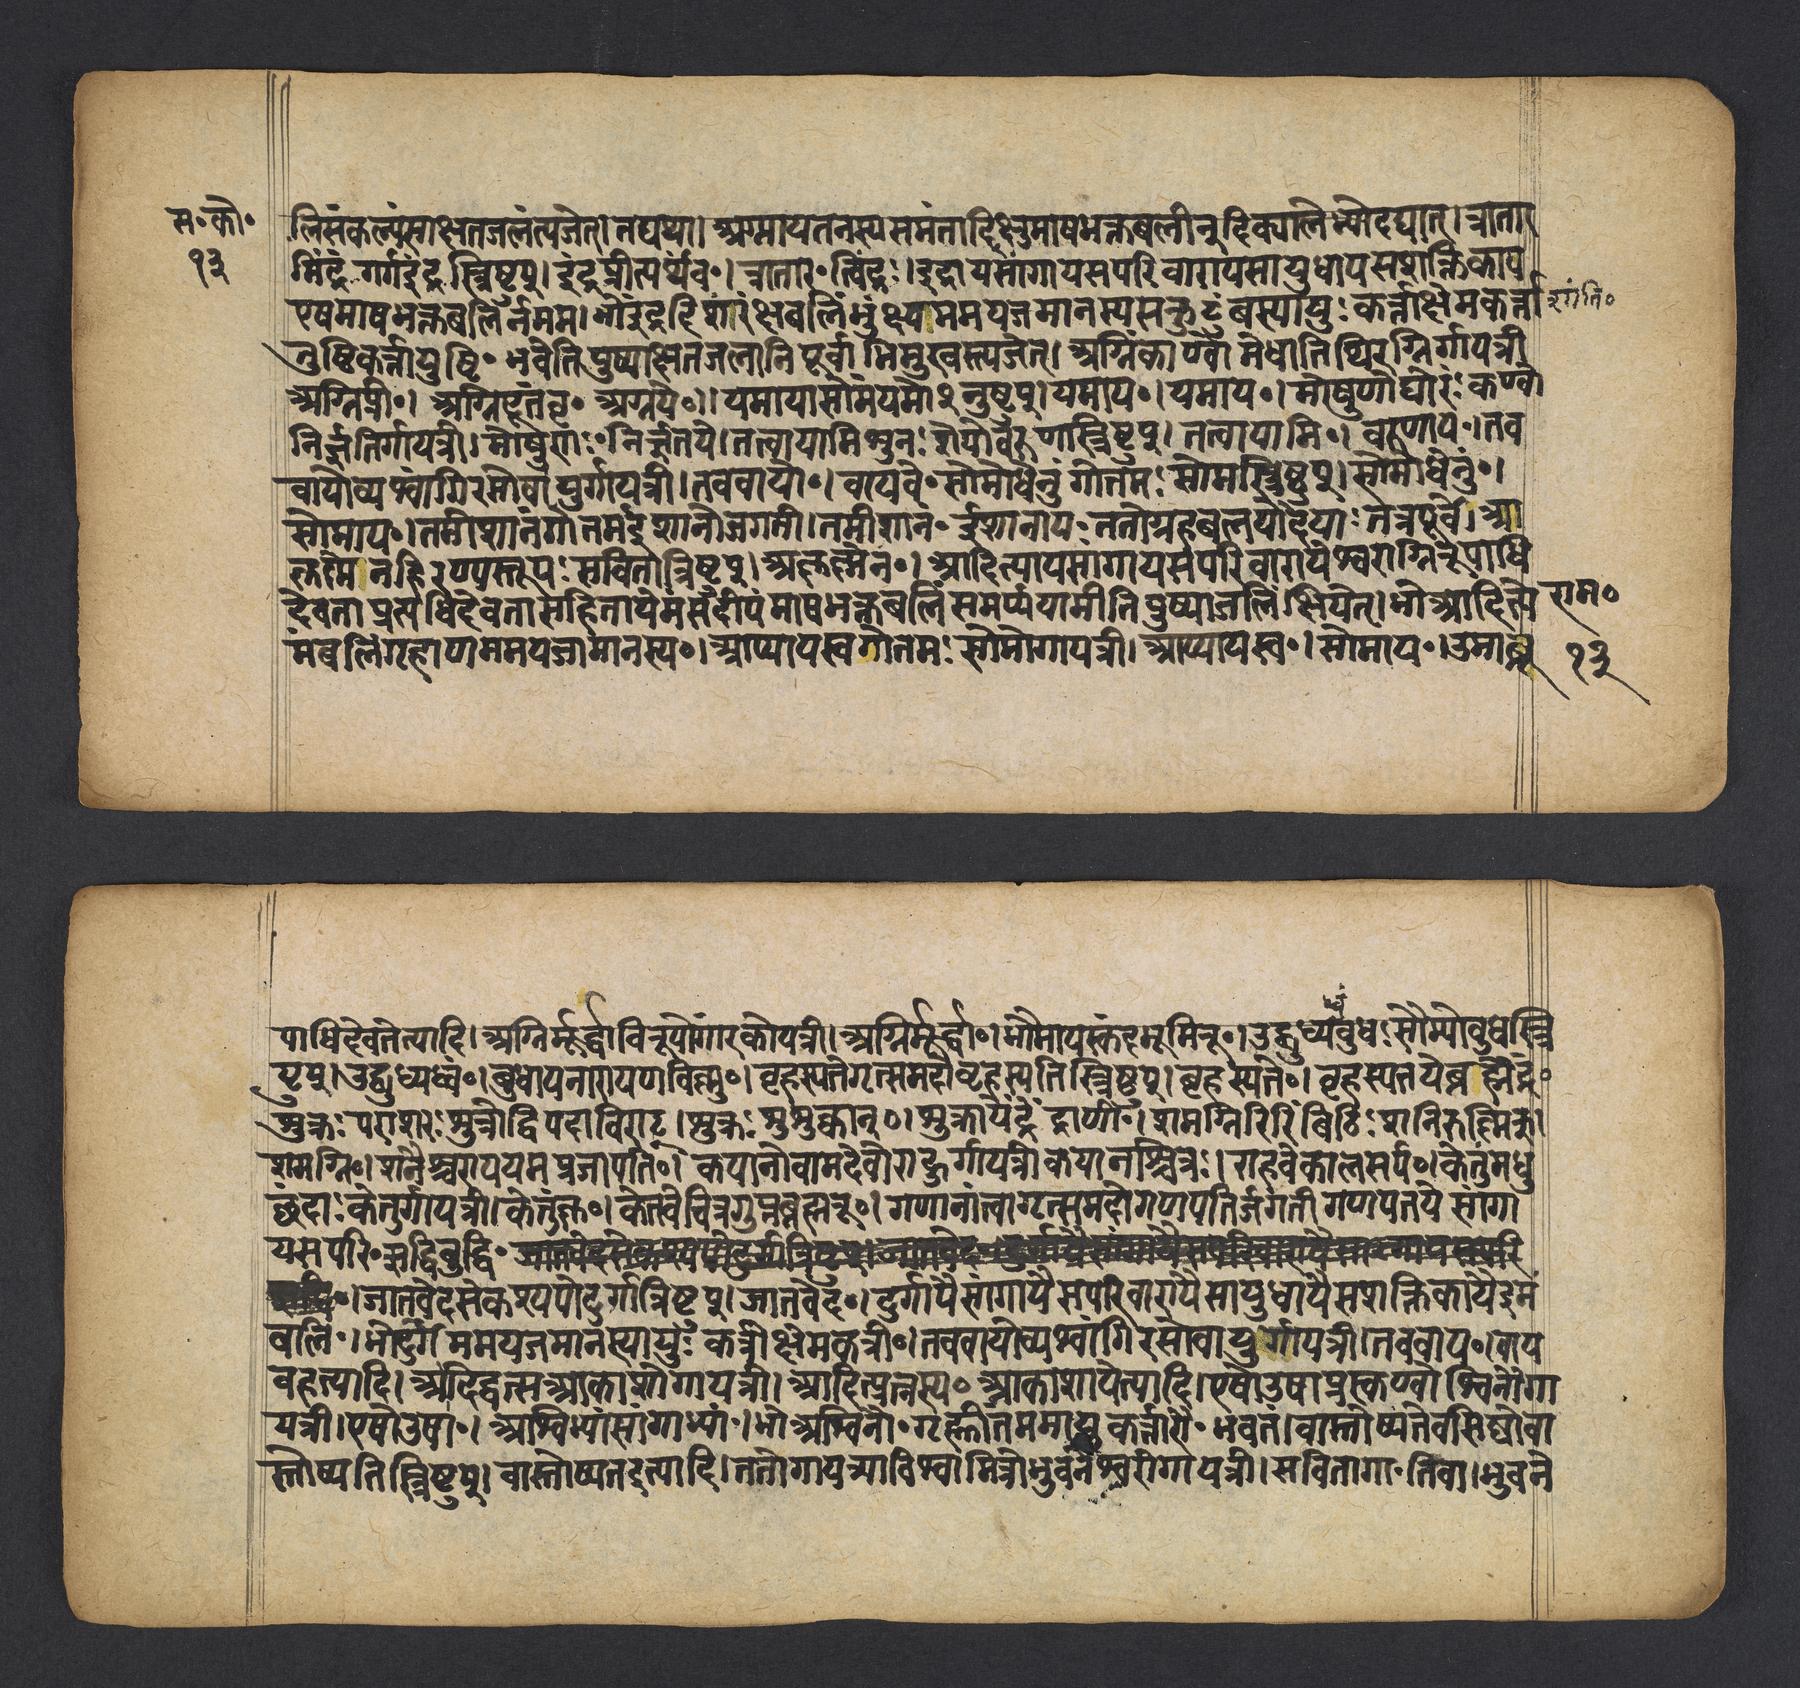 म॰कौ॰
१३
लिसंकल्प्यंसाक्षतजलंत्यजेत्। तद्यथा। अग्न्यायतनस्य समंतादिक्षुमाषभक्तबलीन् दिक्पालेभ्योदद्यात्। त्रातार
मिंद्रं गर्गइंद्र स्त्रिष्टुप्। इंद्रप्रीत्यर्थंव॰। त्रातार॰ त्विंद्रः। इंद्रायसांगायसपरिवारायसायुधाय सशक्तिकाय
एषमाषभक्तबलिर्नमम। भोइंद्रदिशंरक्षबलिंभुंक्ष्वममयजमानस्यसकुटुंबस्यायुः कर्त्ताक्षेमकर्त्ता
तुष्टिकर्त्तापुष्टि॰ भवेति पुष्पाक्षितजलानि पूर्वाभिमुखस्त्यजेत्। अग्निंकाण्वो मेधातिथिरग्निर्गायत्री
अग्निप्री॰। अग्निंदूतंवृ॰ अग्नये॰॥ यमायासोमंयमोऽनुष्टुप्। यमाय॰। यमाय॰। मोषुणोघोरः कण्वो
निर्ऋतिर्गायत्री। मोषुणः॰ निर्ऋतये। तत्वायामिशुनः शेपोवरुणस्त्रिष्टुप्। तत्वायामि॰। वरुणाय॰। तव
वायोव्यश्वांगिरसोवायुर्गायत्री। तववायो॰। वायवे॰ सोमोधेनुं गौतमः सोमस्त्रिष्टुप्। सोमोधेनुं॰।
सोमाय॰। तमीशानंगोतमईशानोजगती। तमीशानं॰ ईशानाय॰ ततोग्रहबलयोदेयाः तत्रपूर्वे। आ
कृष्णेनहिरण्यस्तूपः सवितात्रिष्टुप्। आकृष्णेन॰। आदित्यायसांगायसपरिवारायेश्वराग्निरूपाधि
देवता प्रत्यधिदेवतासहितायेमंसदीपं माषभक्तबलिं समर्पयामीति पुष्पांजलिंक्षिपेत्। भोआदित्ये
मंबलिंगृहाणममयजमानस्य॰। आप्यायस्वगौतमः सोमोगायत्री। आप्यायस्व॰। सोमाय॰। उमाब्रू
राम॰
१३
पाधिदेवतेत्यादि। अग्निर्मूर्द्धाविरूपोंगारकोयत्री। अग्निर्मूर्द्धा॰। भौमायस्कंदभूमिरू॰। उद्बुध्यध्वंबुधः सौम्योबुधस्त्रि
ष्टुप्। उद्बुध्यध्वं॰। बुधायनारायणविष्णु॰। बृहस्पतेगृत्समदोबृहस्पतिस्त्रिष्टुप्। बृहस्पते॰। बृहस्पतयेब्रह्मेंद्र॰
शुक्रः पराशरः शुक्रोद्विपदाविराट्। शुक्रः शुशुक्वान्॰। शुक्रायेंद्रेंद्राणी॰। शमग्निरिरिंबिठिः शनिरुष्णिक्।
शमग्नि॰। शनैश्चराययमप्रजापति॰। कयानोवामदेवोराहुर्गायत्रीकयानश्चित्रः। राहवेकालसर्प॰। केतुंमधु
छंदाः केतुर्गायत्री। केतुंकृ॰। केतवेचित्रगुप्तब्रह्मरू॰। गणानांत्वागृत्समदोगणपतिर्जगती गणपतये सांगा
यसपरि॰ सिद्धिबुद्धि॰
॰। जातवेदसेकश्यपोदुर्गात्रिष्टुप्। जातवेद॰। दुर्गायैसांगायैसपरिवारायैसायुधायैसशक्तिकायैइमं
बलिं॰। भोदुर्गेममयजमानस्यायुः कर्त्रीक्षेमकर्त्री॰। तववायोव्यश्वांगिरसोवायुर्गायत्री। तववाय॰। वाय
वइत्यादि। आदिद्वत्सआकाशोगायत्री। आदित्प्रत्नस्य॰ आकाशायेत्यादि। एषोउषाप्रस्कण्वोश्विनौगा
यत्री। एषोउषा॰। अश्विभ्यांसांगाभ्यां॰। भोअश्विनौ॰ गृह्णीतंममायु कर्त्तारौ॰ भवतं। वास्तोष्पतेवसिष्ठोवा
स्तोष्पतिस्त्रिष्टुप्। वास्तोष्पतइत्यादि। ततोगायत्र्याविश्वामित्रोभुवनेश्वरीगायत्री। सवितागा॰तिवा। भुवने